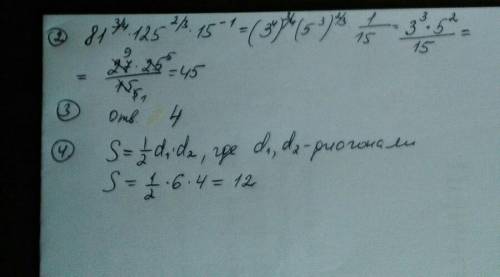 ② 81^{3/4} · 125^{2/3} · 15^{-1} = (3^4)^{3/4} (5^3)^{2/3} · \frac{1}{15} = \frac{3^3 · 5^2}{15} =
= \frac{27 · 25}{15} = 45
③ Отв 4
④ S = \frac{1}{2} d_1 · d_2, где d_1, d_2 - диогонали
S = \frac{1}{2} · 6 · 4 = 12